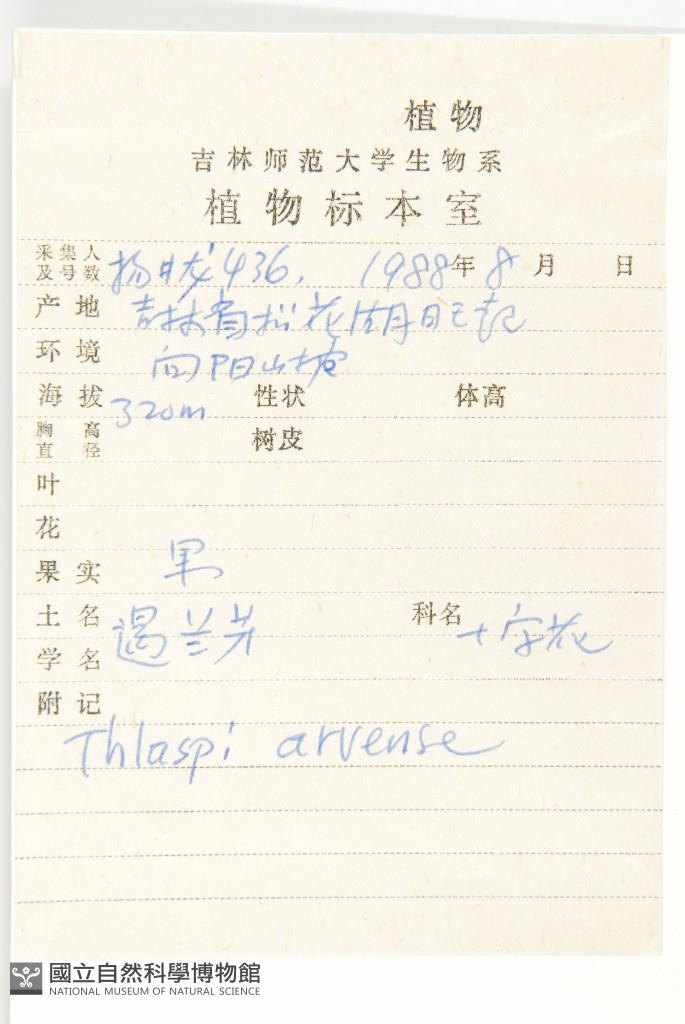 植物
吉林师范大学生物系
植物标本室
采集人及号数 436. 1988年8月 日
产地 吉林省松花湖
环境 向阳山坡
海拔 320m 性状 体高
胸高直径 树皮
叶
花
果实 果
土名 遏兰菜 科名 十字花
学名
附记
Thlaspi arvense
國立自然科學博物館
NATIONAL MUSEUM OF NATURAL SCIENCE